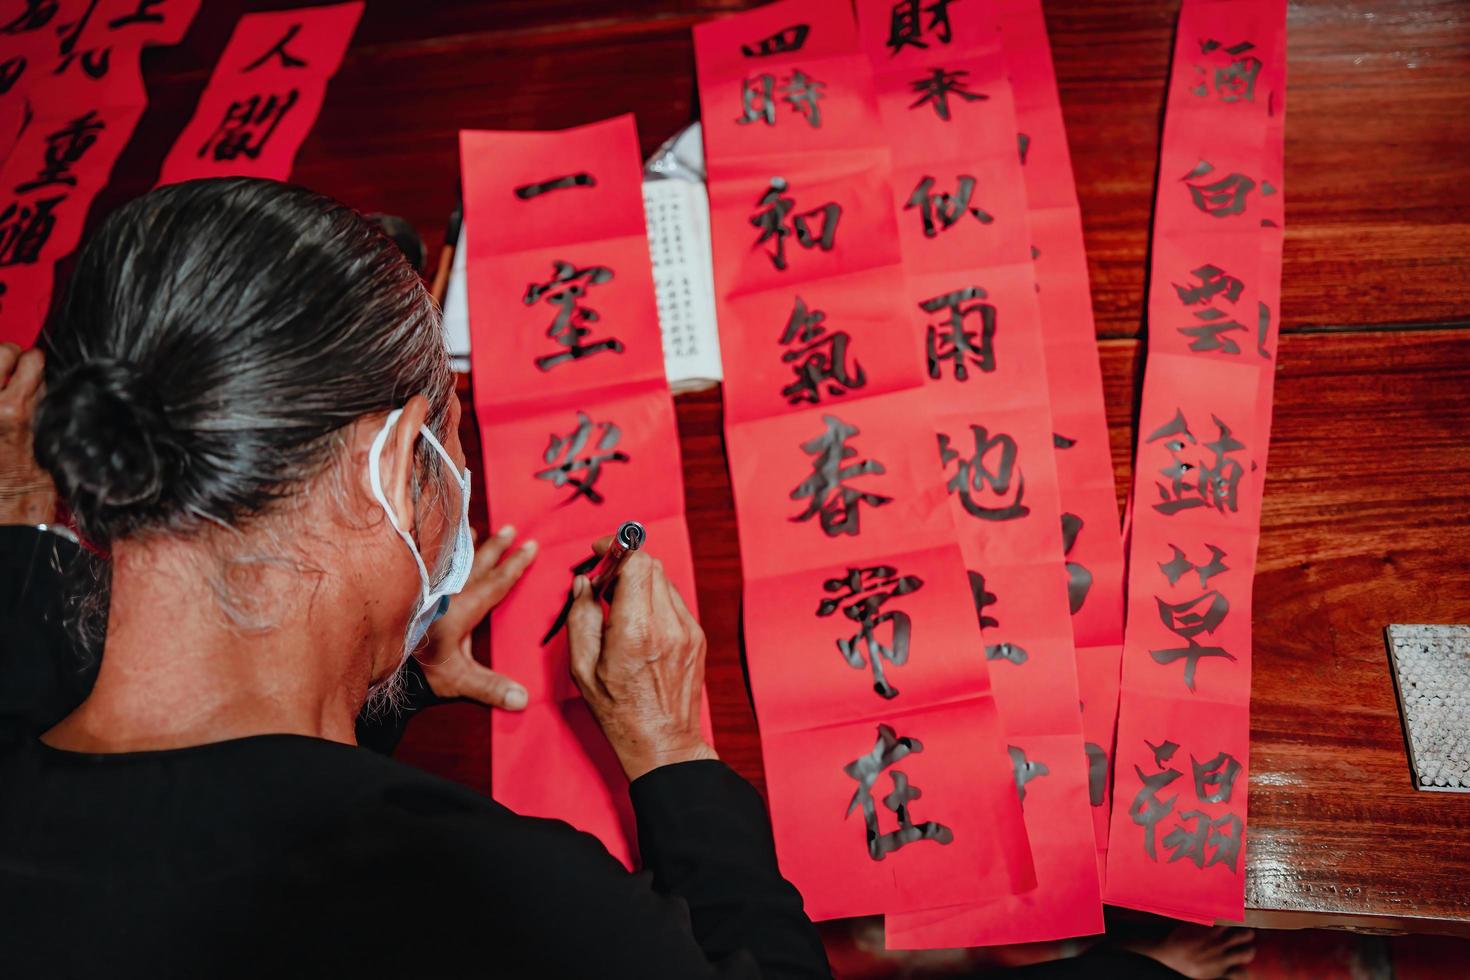 酒白雲鋪草褟
財來似雨地生
四時和氣春常在
一室安
人間
重頒
上